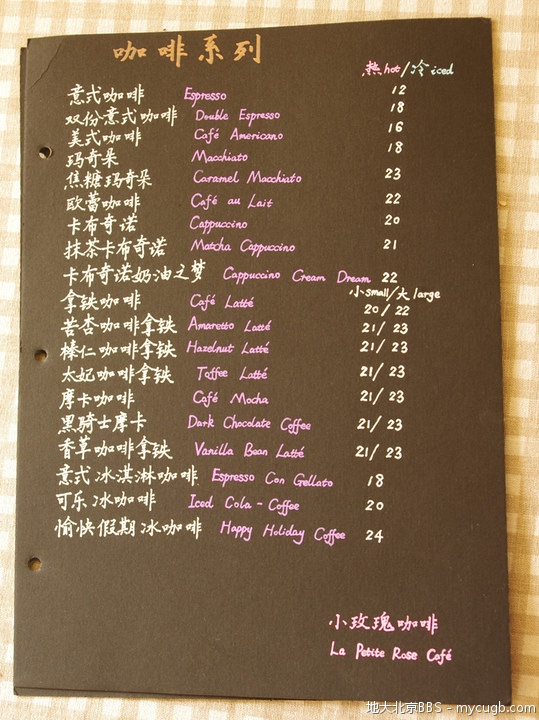 咖啡系列
热hot/冷iced
意式咖啡 Espresso 12
双份意式咖啡 Double Espresso 18
美式咖啡 Café Americano 16
玛奇朵 Macchiato 18
焦糖玛奇朵 Caramel Macchiato 23
欧蕾咖啡 Café au Lait 22
卡布奇诺 Cappuccino 20
抹茶卡布奇诺 Matcha Cappuccino 21
卡布奇诺奶油之梦 Cappuccino Cream Dream 22
小small/大large
拿铁咖啡 Café Latté 20/22
苦杏咖啡拿铁 Amaretto Latté 21/23
榛仁咖啡拿铁 Hazelnut Latté 21/23
太妃咖啡拿铁 Toffee Latté 21/23
摩卡咖啡 Café Mocha 21/23
黑骑士摩卡 Dark Chocolate Coffee 21/23
香草咖啡拿铁 Vanilla Bean Latté 21/23
意式冰淇淋咖啡 Espresso Con Gellato 18
可乐冰咖啡 Iced Cola-Coffee 20
愉快假期冰咖啡 Happy Holiday Coffee 24
小玫瑰咖啡
La Petite Rose Café
地大北京BBS - mycugb.com